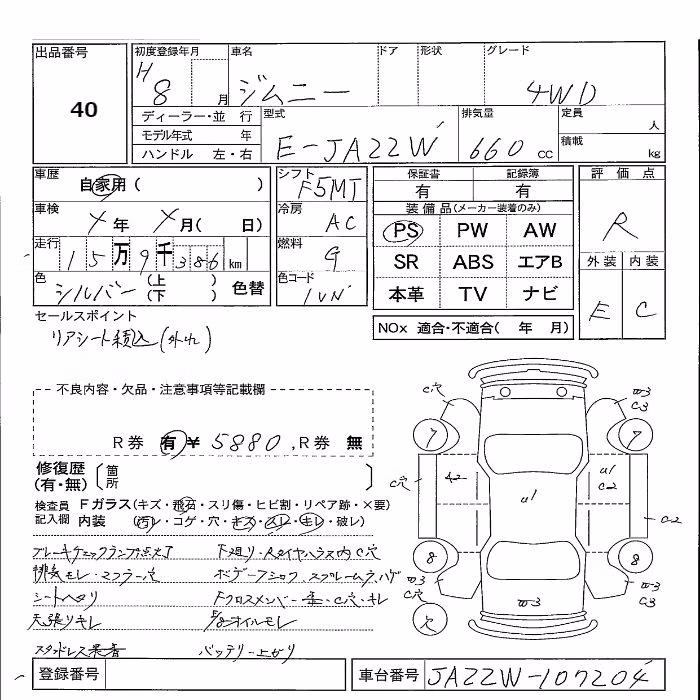 出品番号
40
初度登録年月
H8 月
車名
ジムニー
ドア
形状
グレード
4WD
ディーラー・並 行
モデル年式 年
ハンドル 左・右
型式
E-JA22W
排気量
660 cc
定員
人
積載
kg
車歴
自家用( )
シフト
F5MT
車検
メ年 メ月( 日)
冷房
AC
走行
15万9千386km
燃料
G
色
シルバー (上)(下) 色替
色コード
1VN
保証書
有
記録簿
有
装備品(メーカー装着のみ)
PS PW AW
SR ABS エアB
本革 TV ナビ
NOx 適合・不適合( 年 月)
評価点
R
外装 内装
E C
セールスポイント
リアシート積込(外れ)
不良内容・欠品・注意事項等記載欄
R券 有 ¥ 5880 ,R券 無
修復歴(有・無)
箇所
検査員記入欄
Fガラス(キズ・飛石・スリ傷・ヒビ割・リペア跡・×要)
内装(汚レ・コゲ・穴・キズ・スレ・キレ・破レ)
ブレーキチェックランプ点灯
下廻り・Rタイヤハウス内C穴
排気モレ・マフラー穴
ボデーフシャフ、スフレームラハゲ
シートヘタリ
Fクロスメンバー歪・C穴・キレ
天張りキレ
F/8オイルモレ
スタッドレス装着
バッテリー上がり
C穴
W-3
C3
7
7
C穴
42
U1
U1
C2
C-2
8
8
W3
C穴
W-3
W-3
C3
穴
登録番号
車台番号
JA22W-107204